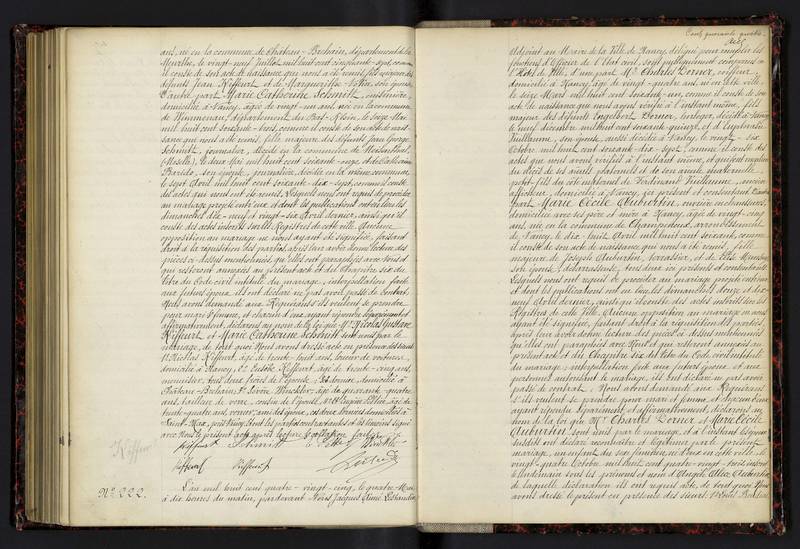 ans, né en la commune de Château-Brehain, département de la
Meurthe, le vingt-neuf Juillet mil huit cent cinquante-sept, comme
il conste de son acte de naissance qui nous a été remis, fils majeur des
défunts Jean Kiffeurt et de Marguerite son épouse,
d'autre part Marie Catherine Schmitt, couturière,
domiciliée à Nancy, âgée de vingt-un ans, née en la commune
de département du Bas-Rhin, le Seize Mai
mil huit cent soixante-trois, comme il conste de son acte de nais-
sance qui nous a été remis, fille majeure des défunts Jean George
Schmitt, journalier, décédé en la commune de
(Moselle), le deux Mai mil huit cent soixante-onze, et de Catherine
son épouse, journalière, décédée en la même commune,
le sept Avril mil huit cent soixante-dix-sept, comme il conste
des actes qui nous ont été remis, Lesquels nous ont requis de procéder
au mariage projeté entr'eux, et dont les publications ont été faites les
dimanches dix-neuf et vingt-six Avril dernier, ainsi qu'il
conste des actes inscrits sur les Registres de cette ville. Aucune
opposition au mariage ne nous ayant été signifiée, faisant
droit à la réquisition des parties, après leur avoir donné lecture des
pièces ci-dessus mentionnées, qu'elles ont paraphées avec nous et
qui resteront annexées au présent acte et du Chapitre six du
titre du Code civil intitulé du mariage, interpellation faite
aux futurs époux, ils ont déclaré ne pas avoir passé de contrat,
Nous avons demandé aux Requérants s'ils veulent se prendre
pour mari et femme, et chacun d'eux ayant répondu séparément et
affirmativement, déclarons au nom de la loi que Mr. Nicolas Gustave
Kiffeurt, et Marie Catherine Schmitt sont unis par le
mariage, de tout quoi Nous avons dressé acte en présence des sieurs
Nicolas Kiffeurt, âgé de trente-huit ans, loueur de voitures,
domicilié à Nancy, Kiffeurt, âgé de trente-cinq ans,
menuisier, tous deux frères de l'époux, domicilié à
Château-Brehain, âgé de quarante-quatre
ans, tailleur de verre, cousin de l'épouse, et âgé de
trente-quatre ans, verrier, ami des époux, ces deux derniers domiciliés à
Saint-Max, près Nancy, dont les parties contractantes et les témoins signé
avec Nous le présent acte après lecture et collation faites.
Kiffeurt Schmitt
Kiffeurt Kiffeurt
Kiffeur
N° 222.
L'an mil huit cent quatre-vingt-cinq, le quatre Mai
à dix heures du matin, pardevant Nous Jacques
Cent quarante quatre.
Adjoint au Maire de la Ville de Nancy, délégué pour remplir les
fonctions d'Officier de l'Etat civil, sont publiquement comparus à
l'Hôtel de Ville, d'une part Mr. Charles Dorner, coiffeur,
domicilié à Nancy, âgé de vingt-quatre ans, né en cette ville
le seize Mars mil huit cent soixante-un, comme il conste de son
acte de naissance que nous avons vérifié à l'instant même, fils
majeur des défunts Engelbert Dorner, horloger, décédé à Nancy
le neuf décembre mil huit cent soixante-quinze, et d'Euphrasie
Vuillaume, son épouse, aussi décédée à Nancy, le vingt-six
Octobre mil huit cent soixante-dix-sept, comme il conste des
actes que nous avons vérifiés à l'instant même, et
du décès de ses aïeuls paternels et de son aïeule maternelle,
petit-fils du côté maternel de Ferdinand Vuillaume, ancien
domicilié à Nancy, ici présent et consentant, d'autre
part Marie Cécile Aubertin, ouvrière en chaussures,
domiciliée avec ses père et mère à Nancy, âgée de vingt-cinq
ans, née en la commune de Champenoux, arrondissement
de Nancy, le dix-huit Avril mil huit cent soixante, comme
il conste de son acte de naissance qui nous a été remis, fille
majeure de Joseph Aubertin, terrassier, et de
son épouse, tous deux ici présents et consentants.
Lesquels nous ont requis de procéder au mariage projeté entr'eux,
et dont les publications ont eu lieu les dimanches douze et dix-
neuf Avril dernier, ainsi qu'il conste des actes inscrits sur les
Registres de cette ville. Aucune opposition au mariage ne nous
ayant été signifiée, faisant droit à la réquisition des parties,
après leur avoir donné lecture des pièces ci-dessus mentionnées
qu'elles ont paraphées avec Nous et qui resteront annexées au
présent acte et du Chapitre six du titre du Code civil intitulé
du mariage, interpellation faite aux futurs époux et aux
personnes autorisant le mariage, ils ont déclaré ne pas avoir
passé de contrat. Nous avons demandé aux Requérants
s'ils veulent se prendre pour mari et femme, et chacun d'eux
ayant répondu séparément et affirmativement, déclarons au
nom de la loi que Mr. Charles Dorner et Marie Cécile
Aubertin sont unis par le mariage, et à l'instant les époux
susdits ont déclaré reconnaître et légitimer par le présent
mariage, un enfant du sexe féminin, né d'eux en cette ville, le
vingt-quatre Octobre mil huit cent quatre-vingt-trois, inscrit
le lendemain sous les prénoms et nom d'Angèle
de laquelle déclaration ils ont requis acte, de tout quoi Nous
avons dressé le présent en présence des sieurs Nicolas